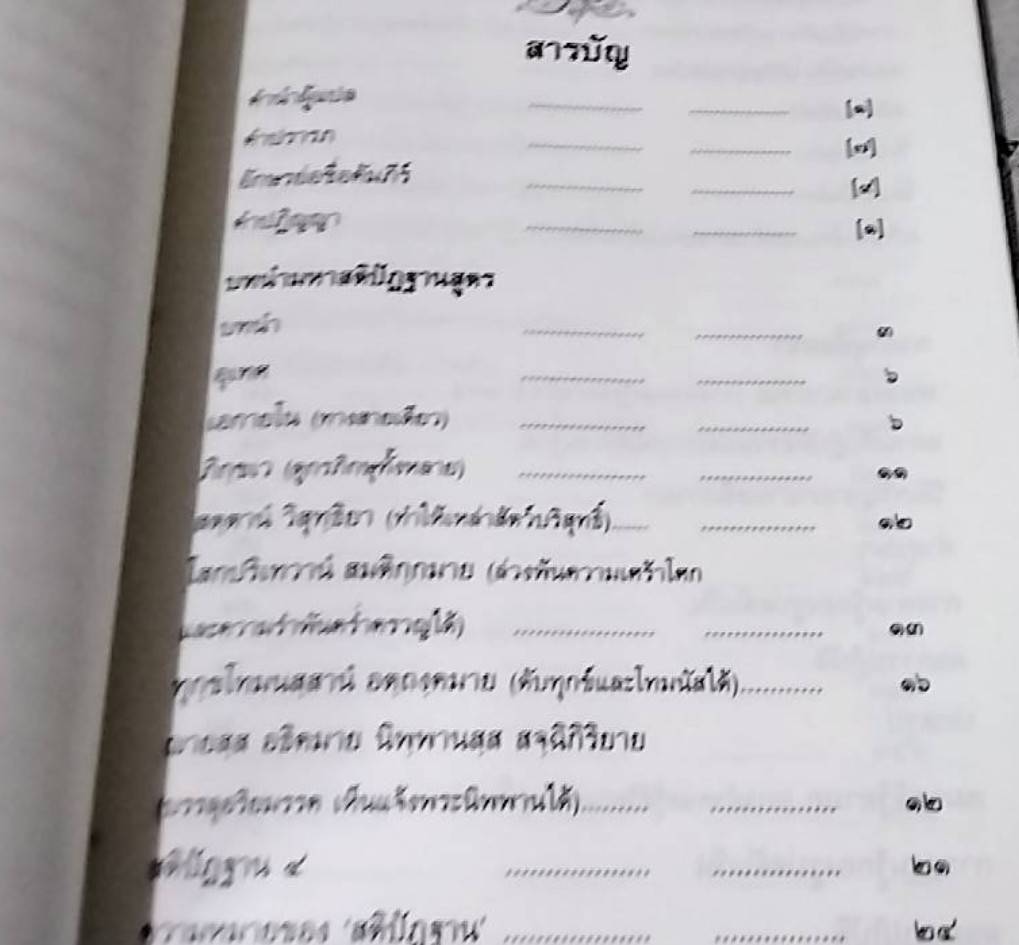 สารบัญ
คำนำผู้แปล ........................ ..................... [๑]
คำปรารภ ........................ ..................... [๗]
อักษรย่อชื่อคัมภีร์ ........................ ..................... [๙]
คำปฏิญญา ........................ ..................... [๑]
บทนำมหาสติปัฏฐานสูตร
บทนำ ........................ ..................... ๓
อุเทศ ........................ ..................... ๖
เอกายโน (ทางสายเดียว) ........................ ..................... ๖
ภิกฺขเว (ดูกรภิกษุทั้งหลาย) ........................ ..................... ๑๑
สตฺตานํ วิสุทฺธิยา (ทำให้เหล่าสัตว์บริสุทธิ์)...... ..................... ๑๒
โสกปริเทวานํ สมติกฺกมาย (ล่วงพ้นความเศร้าโศก
และความรำพันคร่ำครวญได้) ........................ ..................... ๑๓
ทุกฺขโทมนสฺสานํ อตฺถงฺคมาย (ดับทุกข์และโทมนัสได้)........... ๑๖
ญายสฺส อธิคมาย นิพฺพานสฺส สจฺฉิกิริยาย
(บรรลุอริยมรรค เห็นแจ้งพระนิพพานได้)......... ................ ๑๒
สติปัฏฐาน ๔ ........................ ..................... ๒๑
ความหมายของ 'สติปัฏฐาน' ........................ ..................... ๒๔